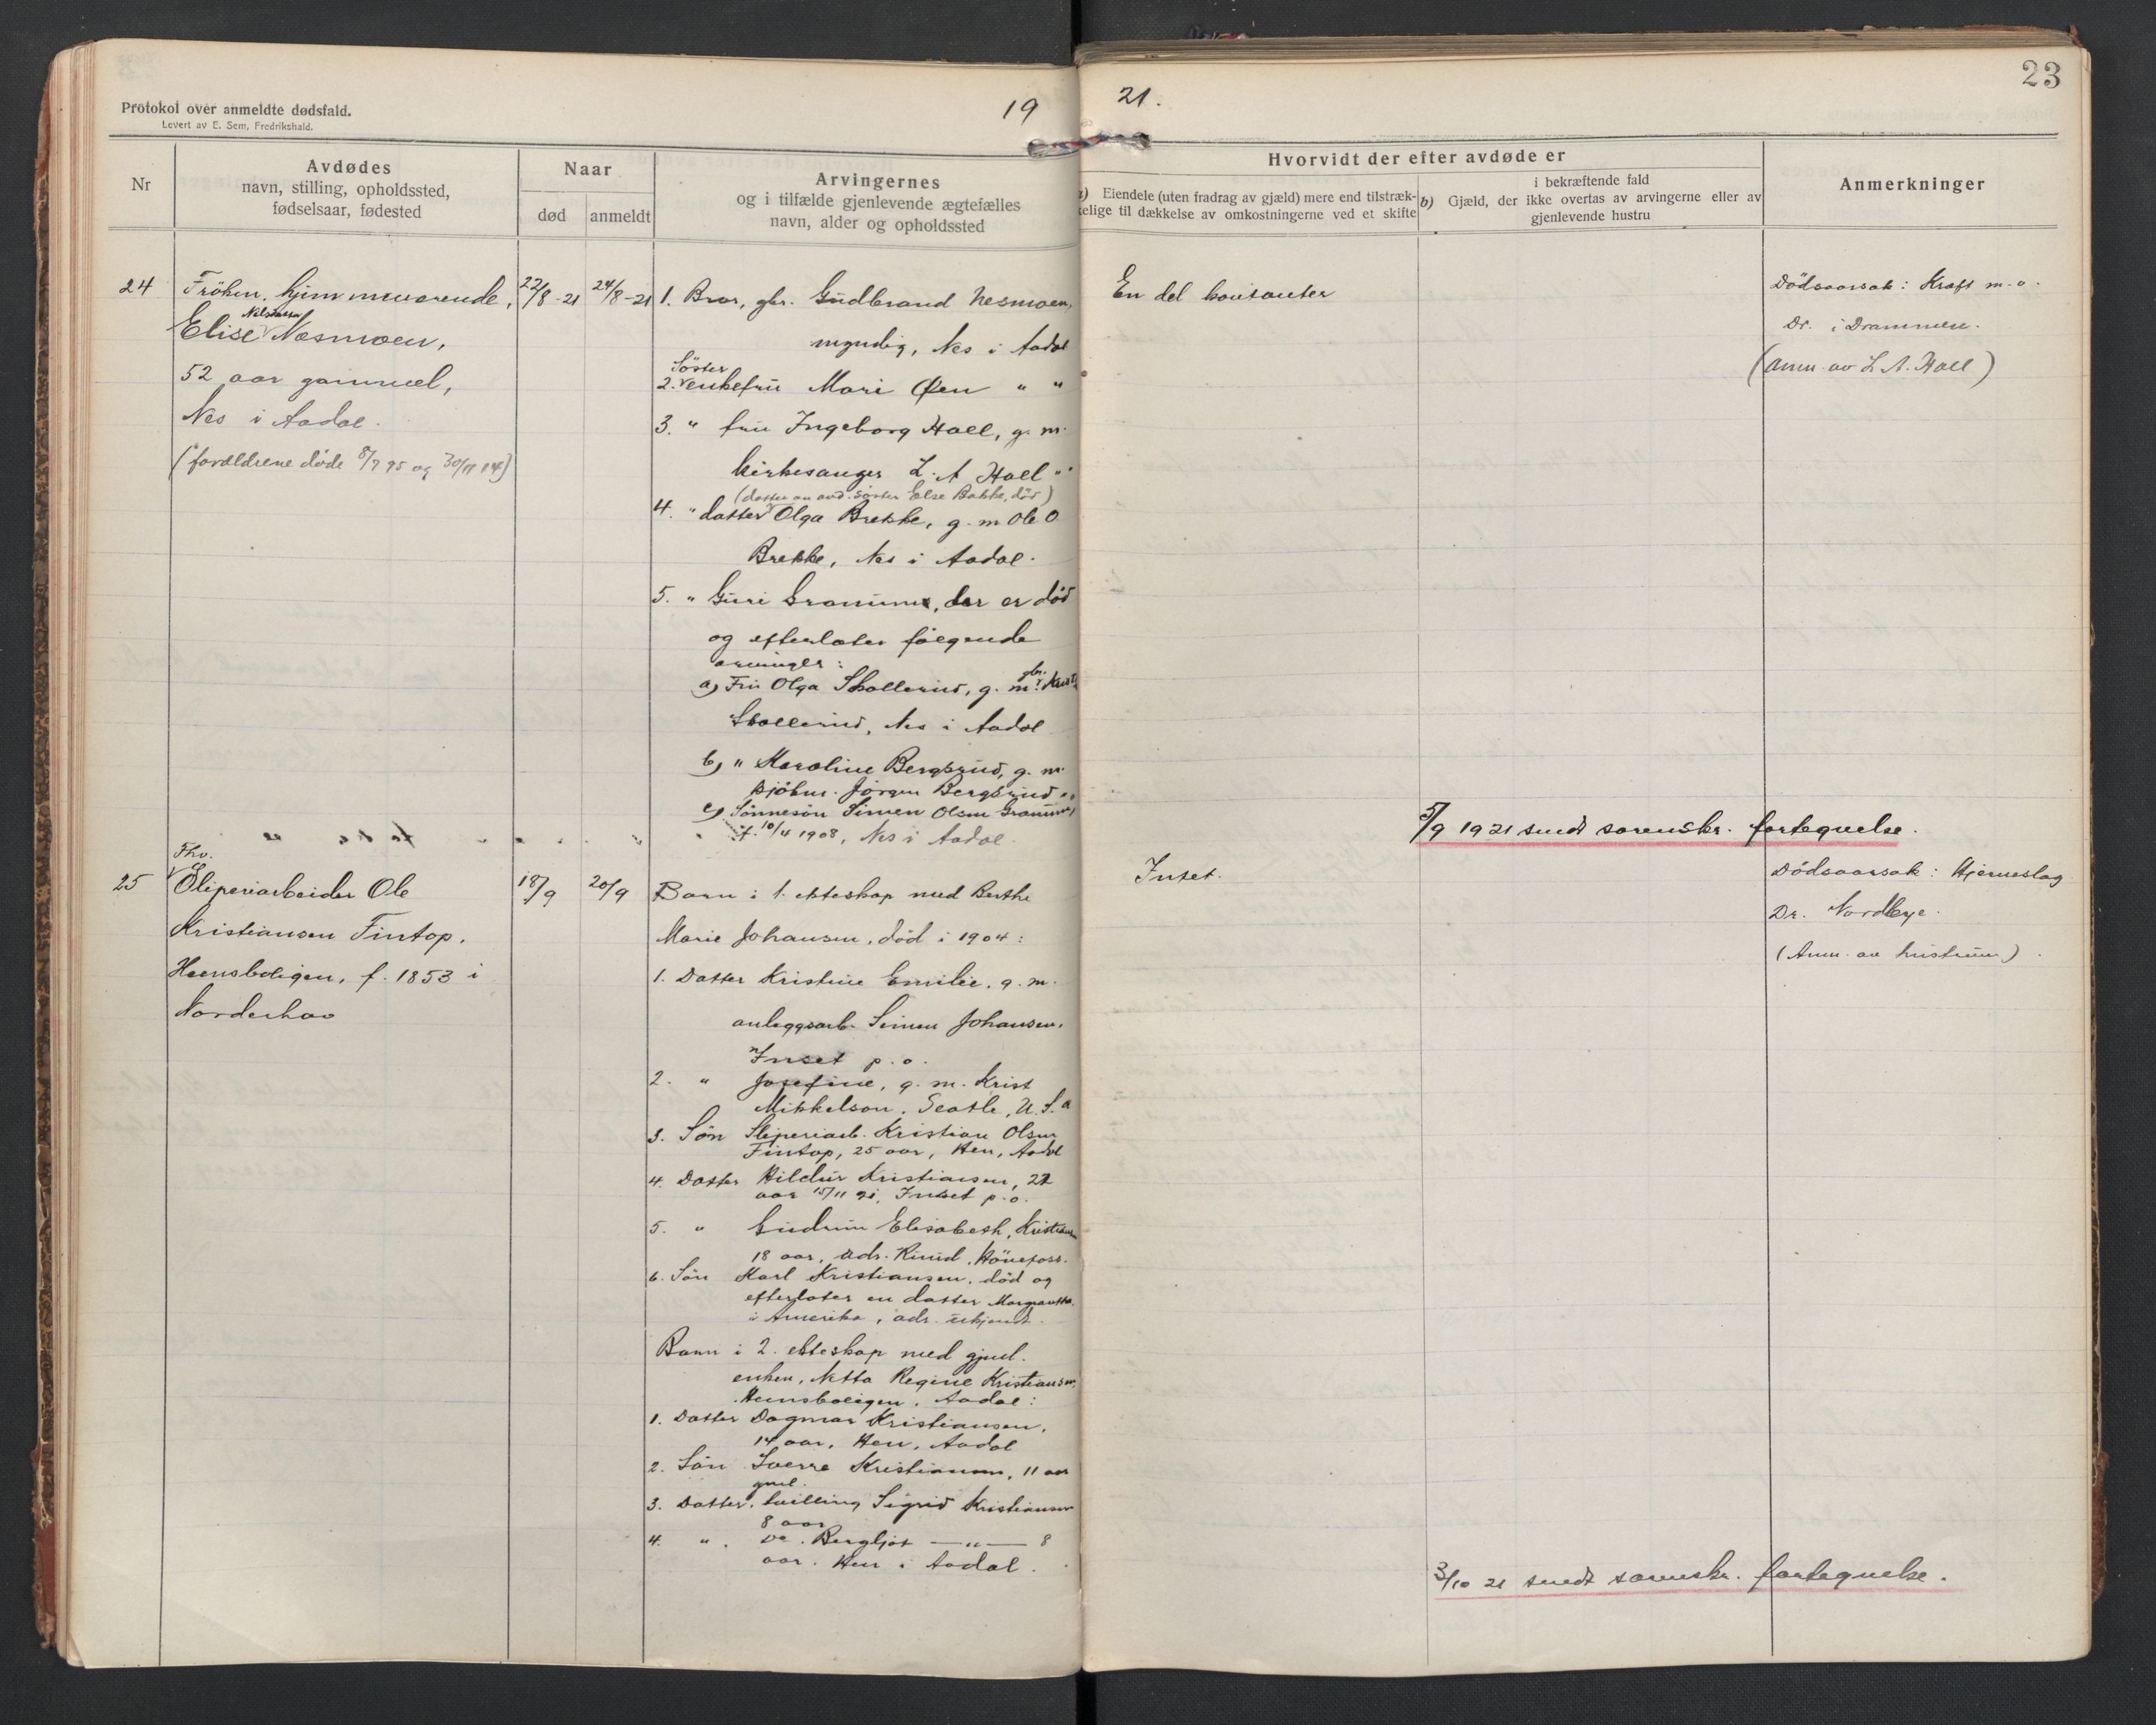 Protokol over anmeldte dødsfald.
Levert av E. Sem, Fredrikshald.
19
21.
23
Nr
Avdødes
navn, stilling, opholdssted,
fødselsaar, fødested
Naar
død
anmeldt
Arvingernes
og i tilfælde gjenlevende ægtefælles
navn, alder og opholdssted
Hvorvidt der efter avdøde er
a) Eiendele (uten fradrag av gjæld) mere end tilstræk-
kelige til dækkelse av omkostningerne ved et skifte
i bekræftende fald
b) Gjæld, der ikke overtas av arvingerne eller av
gjenlevende hustru
Anmerkninger
24
Fröken, hjemmeværende,
Elise Nilsdatter Næsmoen,
52 aar gammel,
Nes i Aadal.
(forældrene døde 8/7 95 og 30/11 14)
22/8-21
24/8-21
1. Bror, gbr. Gudbrand Nesmoen,
myndig, Nes i Aadal
Söster
2. enkefru Mari Øen " "
3. " fru Ingeborg Hall, g. m.
kirkesanger L. A Hall "
(datter av avd. söster Else Bakke, död)
4. " datter Olga Brekke, g. m Ole O
Brekke, Nes i Aadal.
5. " Guri Grammer, der er död
og efterlater følgende
arvinger:
a) Fru Olga Skollerud, g. m. gbr.
Skollerud, Nes i Aadal
b) " Karoline Bergsrud, g. m.
Jörgen Bergsrud "
c) Sönnesön Simen Olsen
f. 10/4 1908, Nes i Aadal.
En del kontanter
Dödsaarsak: Kræft m. v.
Dr. i Drammen.
(Anm. av L. A. Hall)
5/9 1921 sendt sorenskr. fortegnelse.
25
Fhv.
Sliperiarbeider Ole
Kristiansen Fintop.
Hensboligen, f. 1853 i
Norderhov
18/9
20/9
Barn i 1. ekteskap med Berthe
Marie Johansen, död i 1904:
1. Datter Kristine Emilie, g. m.
anleggsarb. Simen Johansen,
Inset p. o.
2. " Josefine, g. m. Krist
Mikkelson. Seatle, U. S. a
3. Sön Sliperiarb. Kristian Olsen
Fintop, 25 aar, Hen, Aadal
4. Datter Hildur Kristiansen, 21
aar 15/11 21, Inset p. o.
5. " Gudrun Elisabeth, Kristiansen
18 aar, adr. Hönefoss.
6. Sön Karl Kristiansen, död og
efterlater en datter
i Amerika, adr. ukjendt.
Barn i 2. ekteskap med gjenl.
enken, Netta Regine Kristiansen,
Hensboligen, Aadal:
1. Datter Dagmar Kristiansen,
14 aar, Hen, Aadal
2. Sön Sverre Kristiansen, 11 aar
gml.
3. Datter, tvilling Sigrid Kristiansen
8 aar
4. " . Do. Bergljot —"— 8
aar. Hen i Aadal.
Intet.
Dödsaarsak: Hjerneslag
Dr. Nordbye.
(Anm. av hustruen).
3/10 21 sendt sorenskr. fortegnelse.